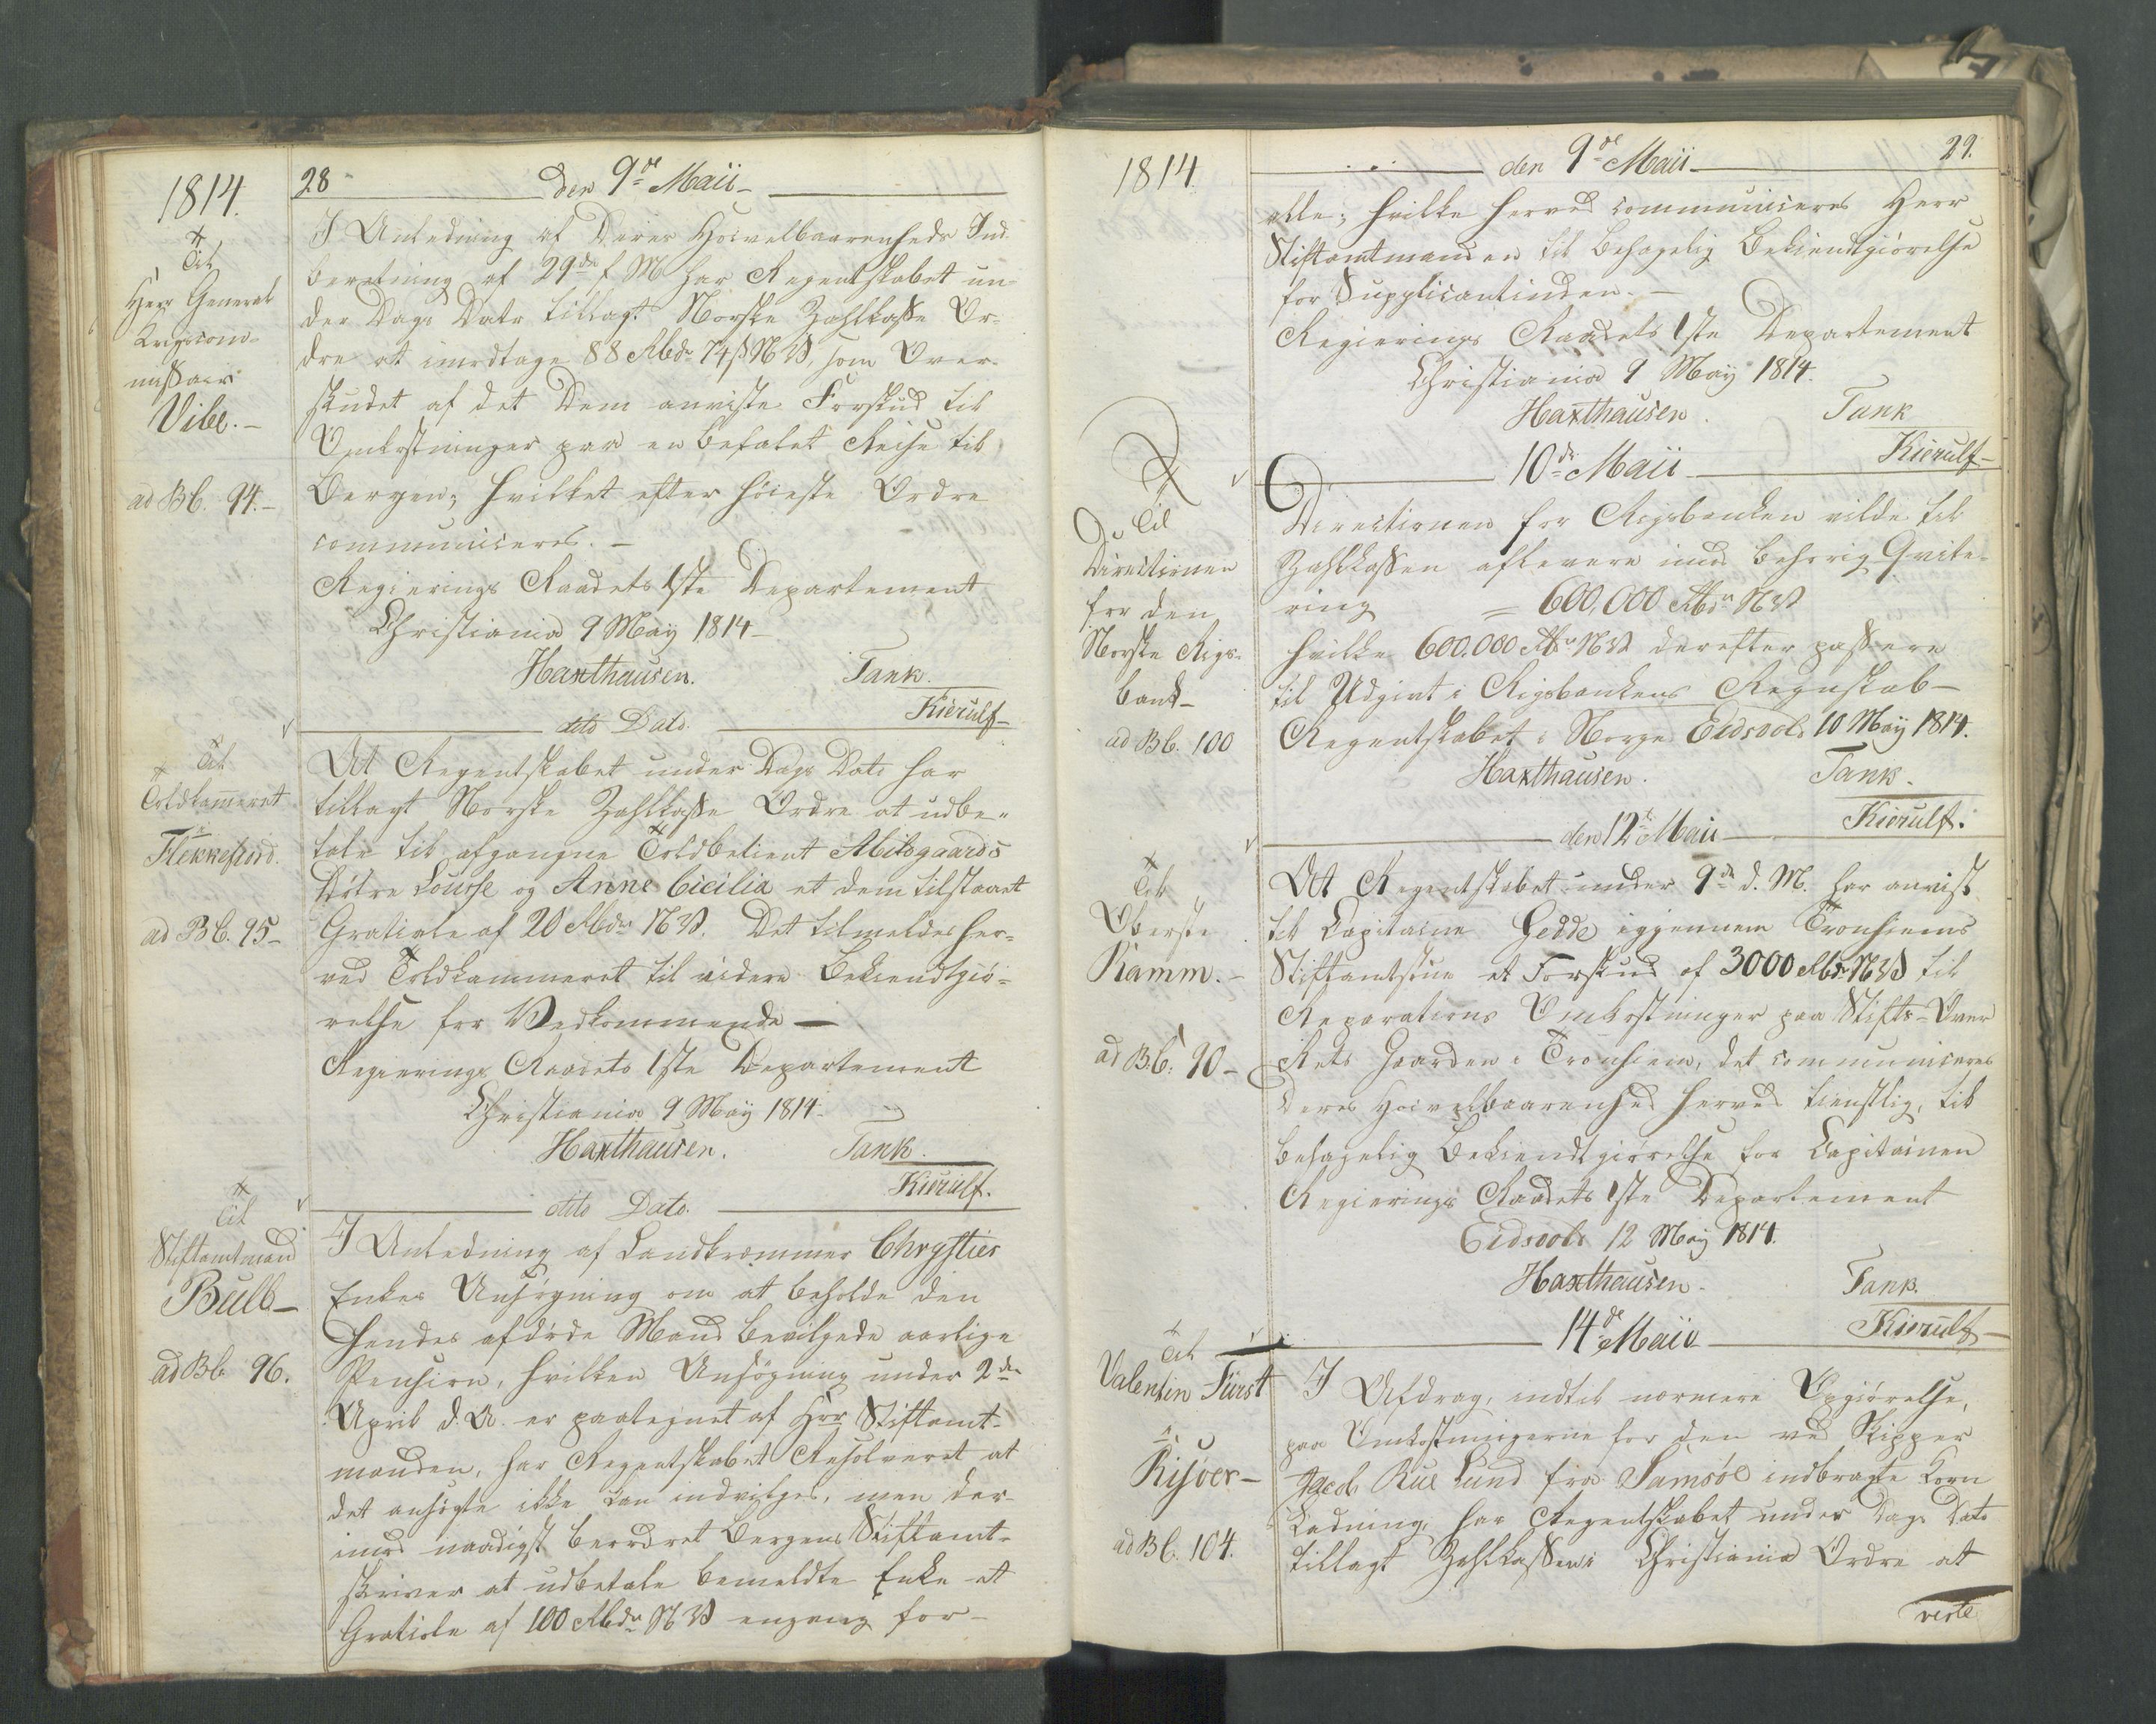 1814.
28
den 9de Maii
Til
Herr General
Krigscom-
missair
Vibe.-
ad Bb. 94.-
I Anledning af Deres Høivelbaarenheds Ind-
beretning af 29de f. M. har Regentskabet un-
der Dags Dato tillagt Norske Zahlkasse Or-
dre at imodtage 88 Rbdr 74 s NV, som Over-
skudet af det Dem anviste Forskud til
Omkostninger paa en befalet Reise til
Bergen; hvilket efter høieste Ordre
communiceres.-
Regierings Raadets 1ste Departement
Christiania 9 May 1814-
Haxthausen. Tank.
Kierulf-
dito Dato.
Til
Toldkammeret
i
Flekkefiord.
ad Bb. 95-
At Regentskabet under Dags Dato har
tillagt Norske Zahlkasse Ordre at udbe-
tale til afgangne Toldbetient Abilsgaards
Døtre Lousse og Anne Cicilia et dem tilstaaet
Gratiale af 20 Rbdr NV. Det tilmeldes her-
ved Toldkammeret til videre Bekiendtgiø-
relse for Vedkommende-
Regierings Raadets 1ste Departement
Christiania 9 May 1814.
Haxthausen. Tank.
Kierulf.
dito Dato.
Til
Stiftamtmand
Bull-
ad Bb 96.
I Anledning af Landkræmmer Chrysties
Enkes Ansøgning om at beholde den
hendes afdøde Mand bevilgede aarlige
Pension, hvilken Ansøgning under 2den
April d. A. er paategnet af Hrr Stiftamt-
manden, har Regentskabet Resolveret at
det ansøgte ikke kan indvilges, men der-
imod naadigst beordret Bergens Stiftamt-
skriver at udbetale bemeldte Enke et
Gratiale af 100 Rbdr NV engang for-
1814
den 9de Maii
29.
alle; hvilke herved communiceres Herr
Stiftamtmanden til behagelig Bekiendtgiørelse
for Supplicantinden.-
Regierings Raadets 1ste Departement
Christiania 9 May 1814.
Haxthausen. Tank
Kierulf-
10de Maii
Til
Directionen
for den
Norske Rigs-
bank-
ad Bb. 100
Directionen for Rigsbanken vilde til
Zahlkassen aflevere imod behørig Qvite-
ring = 600,000 Rbdr NV
hvilke 600.000 Rbr NV derefter passere
til Udgivt i Rigsbankens Regnskab-
Regentskabet i Norge Eidsvold 10 May 1814.
Haxthausen. Tank.
Kierulf.
den 12te Maii
Til
Oberste
Ramm.-
ad Bb. 90-
At Regentskabet under 9de d. M. har anvist
til Capitaine Gedde igjennem Tronhiems
Stiftamtstue et Forskud af 3000 Rbdr NV til
Reparations Omkostninger paa Stifts-Over
Rets Gaarden i Tronhiem, det communiceres
Deres Høivelbaarenhed herved tienstlig, til
behagelig Bekiendtgiørelse for Capitainen
Regierings Raadets 1ste Departement
Eidsvold 12 May 1814.
Haxthausen. Tank.
Kierulf-
14de Maii
Til
Valentin Fürst
i
Risöer-
ad Bb. 104.
I Afdrag, indtil nærmere Opgiørelse,
paa Omkostningerne for den ved Skipper
Jacob Rue Lund fra Samsøe indbragte Korn
Ladning, har Regentskabet under Dags Dato
tillagt Zahlkassen i Christiania Ordre at
verte